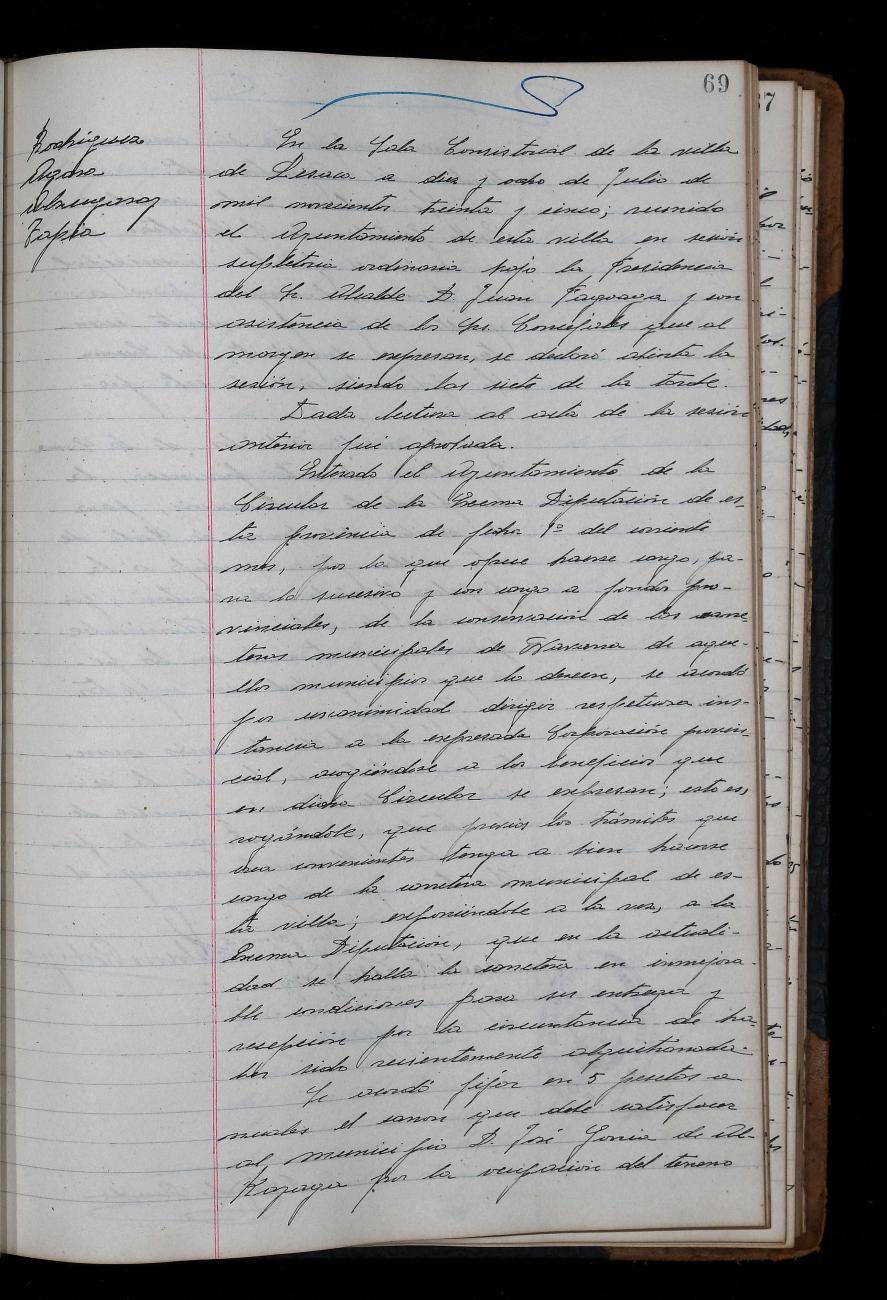 69
Rodriguez
Agara
Tapia
En la Sala Consistorial de la villa
de Lesaca a diez y ocho de Julio de
mil novecientos treinta y cinco; reunido
el Ayuntamiento de esta villa en sesión
supletoria ordinaria bajo la Presidencia
del Sr. Alcalde D. Juan Fagoaga y con
asistencia de los Srs. Concejales que al
margen se expresan, se declaró abierta la
sesión, siendo las siete de la tarde.
Dada lectura al acta de la sesión
anterior fué aprobada.
Enterado el Ayuntamiento de la
Circular de la Excma Diputación de es-
ta provincia de fecha 1º del corriente
mes, por la que ofrece hacerse cargo, pa-
ra lo sucesivo y con cargo a fondos pro-
vinciales, de la conservación de las carre-
teras municipales de Navarra de aque-
llos municipios que lo deseen, se acordó
por unanimidad dirigir respetuosa ins-
tancia a la expresada Corporación provin-
cial, acogiéndose a los beneficios que
en dicha Circular se expresan; esto es,
rogándole, que previos los trámites que
crea convenientes tenga a bien hacerse
cargo de la carretera municipal de es-
ta villa; exponiéndole a la vez, a la
Excma Diputación, que en la actuali-
dad se halla la carretera en inmejora-
ble condiciones para su entrega y
recepción por la circunstancia de ha-
ber sido recientemente alquitranada.
Se acordó fijar en 5 pesetas a
nuales el canon que debe satisfacer
al municipio D. José Goñia de Al-
Kazaga por la ocupación del terreno